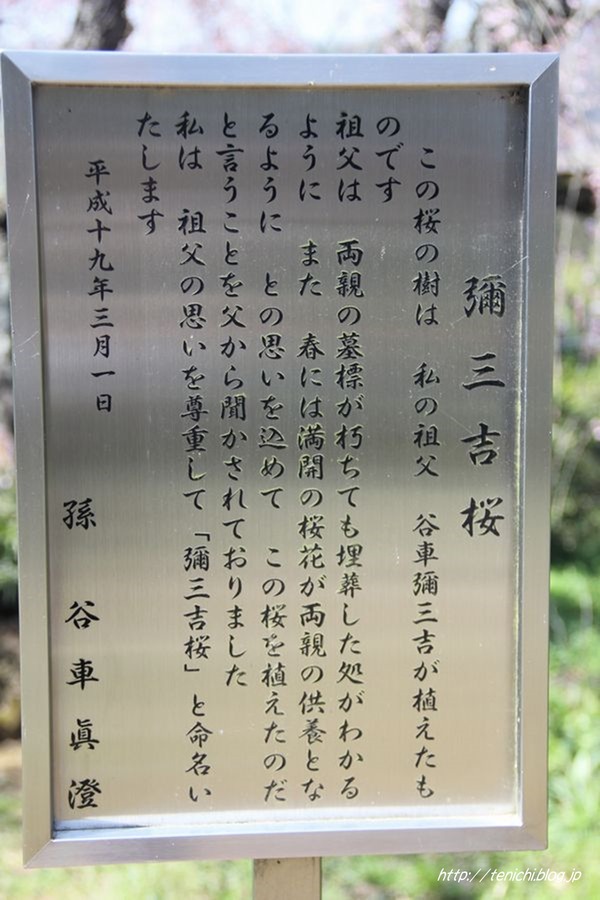 彌三吉桜
この桜の樹は　私の祖父　谷車彌三吉が植えたも
のです
祖父は　両親の墓標が朽ちても埋葬した処がわかる
ように　また　春には満開の桜花が両親の供養とな
るように　との思いを込めて　この桜を植えたのだ
と言うことを父から聞かされておりました
私は　祖父の思いを尊重して「彌三吉桜」と命名い
たします
平成十九年三月一日
孫　谷車眞澄
http://tenichi.blog.jp